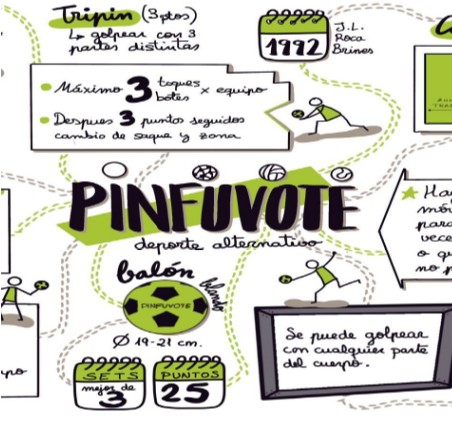 Tripin (3 ptos)
↳ golpear con 3
partes distintas
1992
J.L.
Roca
Brines
• Máximo 3 toques
botes x equipo
• Despues 3 puntos seguidos
cambio de saque y zona
PINFUVOTE
deporte alternativo
balón
blando
PINFUVOTE
Ø 19-21 cm.
SETS
mejor de
3
PUNTOS
25
Se puede golpear
con cualquier parte
del cuerpo.